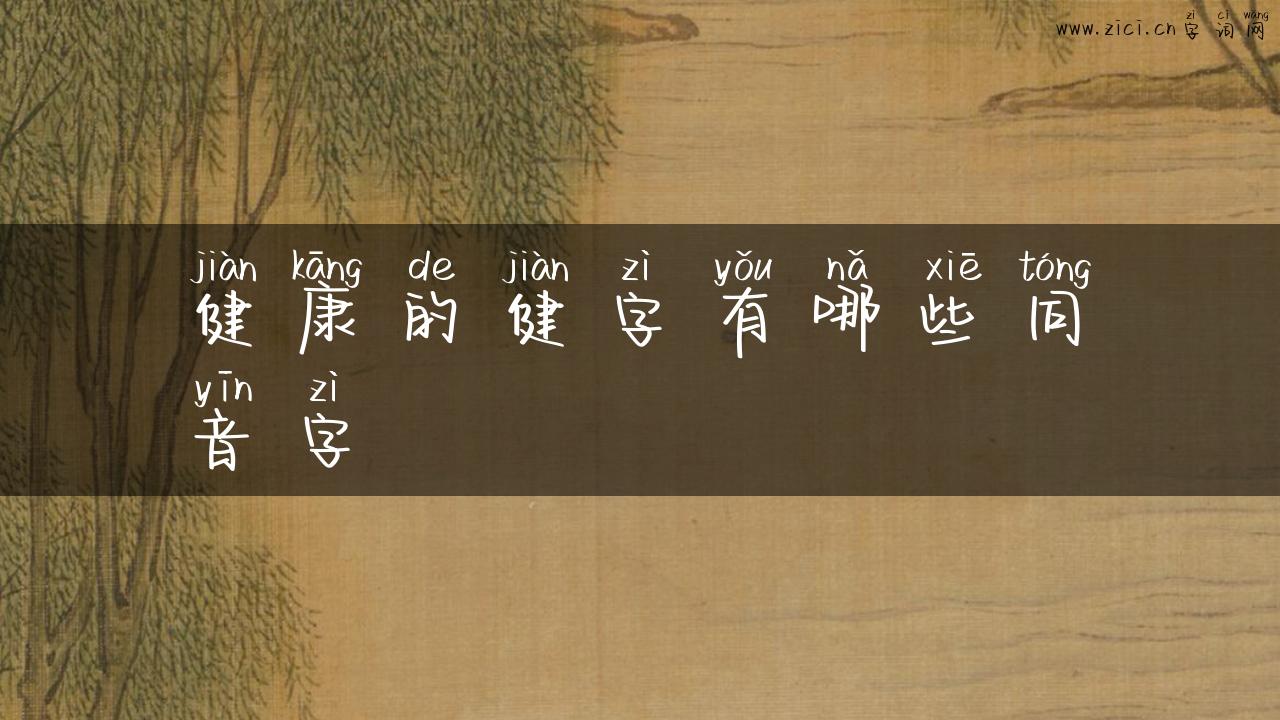 zì cí wǎng
www.zici.cn 字词网
jiàn kāng de jiàn zì yǒu nǎ xiē tóng
健康的健字有哪些同
yīn zì
音字